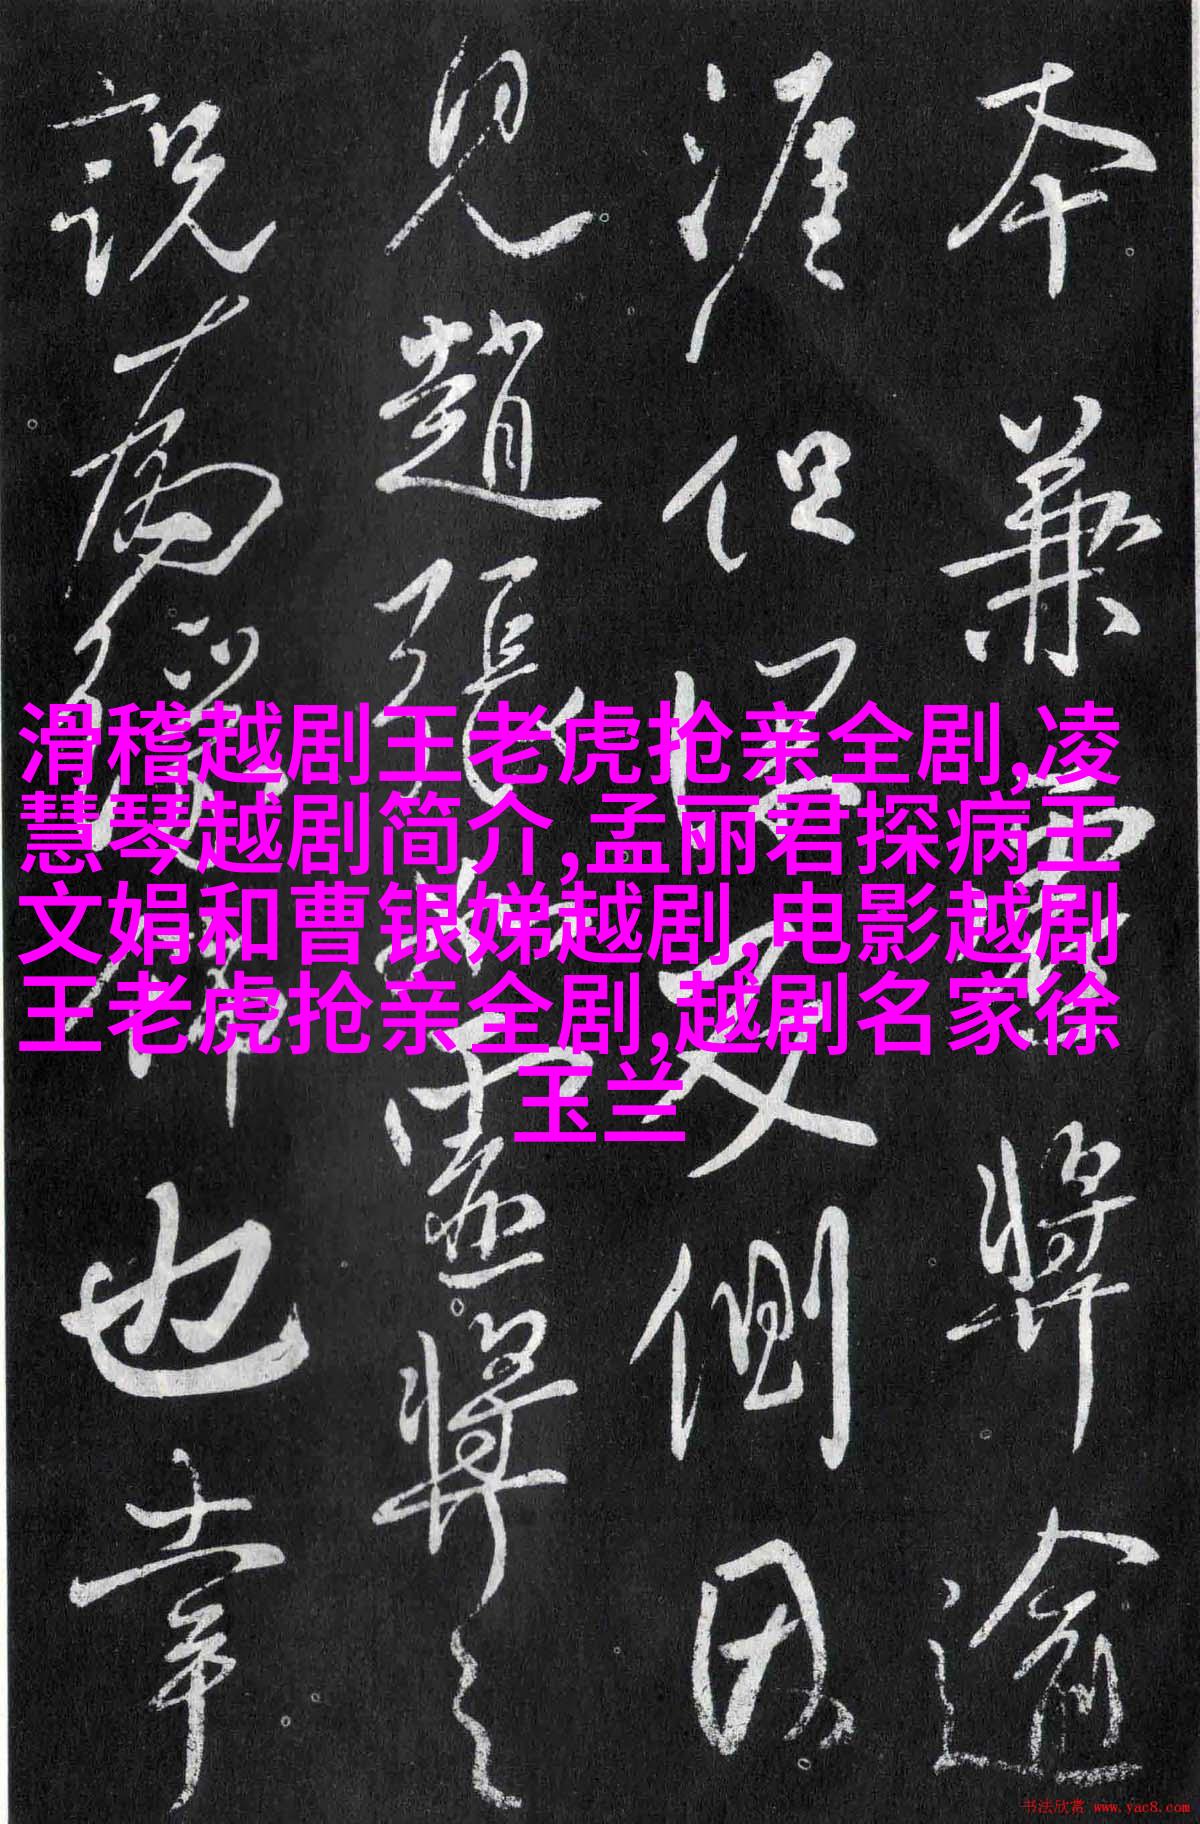 本兼
涯但
見趙張
説
將逾
又側因
靈將之
也章
滑稽越剧王老虎抢亲全剧,凌
慧琴越剧简介,孟丽君探病王
文娟和曹银娣越剧,电影越剧
王老虎抢亲全剧,越剧名家徐
玉兰
书法欣赏 www.yac8.com